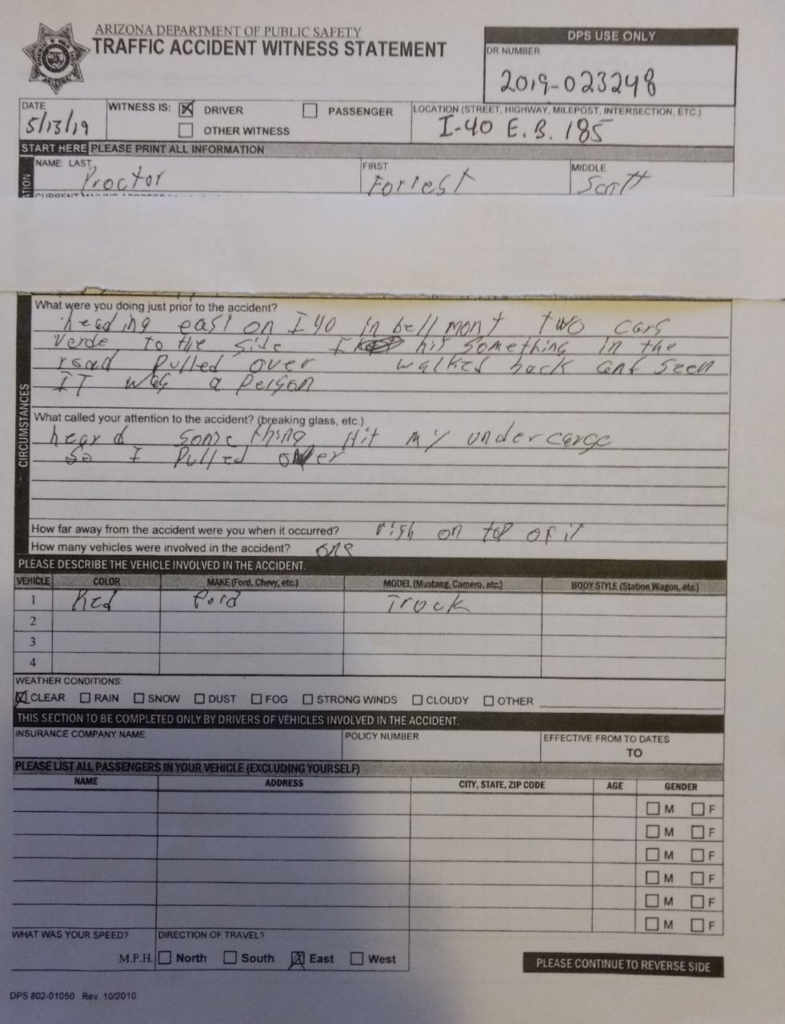 ARIZONA DEPARTMENT OF PUBLIC SAFETY
TRAFFIC ACCIDENT WITNESS STATEMENT
DPS USE ONLY
DR NUMBER
2019-023248
DATE
5/13/19
WITNESS IS: DRIVER PASSENGER
OTHER WITNESS
LOCATION (STREET, HIGHWAY, MILEPOST, INTERSECTION, ETC.)
I-40 E.B. 185
START HERE PLEASE PRINT ALL INFORMATION
NAME: LAST, FIRST MIDDLE
Proctor Forrest Scott
What were you doing just prior to the accident?
heading east on I 40 in bellmont two cars
verde to the side I hit something in the
road Pulled over walked back and seen
IT was a Person
CIRCUMSTANCES
What called your attention to the accident? (breaking glass, etc.)
heard something Hit my undercarge
So I Pulled over
How far away from the accident were you when it occurred? righ on top of it
How many vehicles were involved in the accident? one
PLEASE DESCRIBE THE VEHICLE INVOLVED IN THE ACCIDENT.
VEHICLE COLOR MAKE (Ford, Chevy, etc.) MODEL (Mustang, Camero, etc.) BODY STYLE (Station Wagon, etc.)
1 Red Ford Truck
2
3
4
WEATHER CONDITIONS:
CLEAR RAIN SNOW DUST FOG STRONG WINDS CLOUDY OTHER
THIS SECTION TO BE COMPLETED ONLY BY DRIVERS OF VEHICLES INVOLVED IN THE ACCIDENT.
INSURANCE COMPANY NAME POLICY NUMBER EFFECTIVE FROM TO DATES
TO
PLEASE LIST ALL PASSENGERS IN YOUR VEHICLE (EXCLUDING YOURSELF)
NAME ADDRESS CITY, STATE, ZIP CODE AGE GENDER
M F
M F
M F
M F
M F
M F
WHAT WAS YOUR SPEED? DIRECTION OF TRAVEL?
M.P.H. North South East West
PLEASE CONTINUE TO REVERSE SIDE
DPS 802-01050 Rev. 10/2010